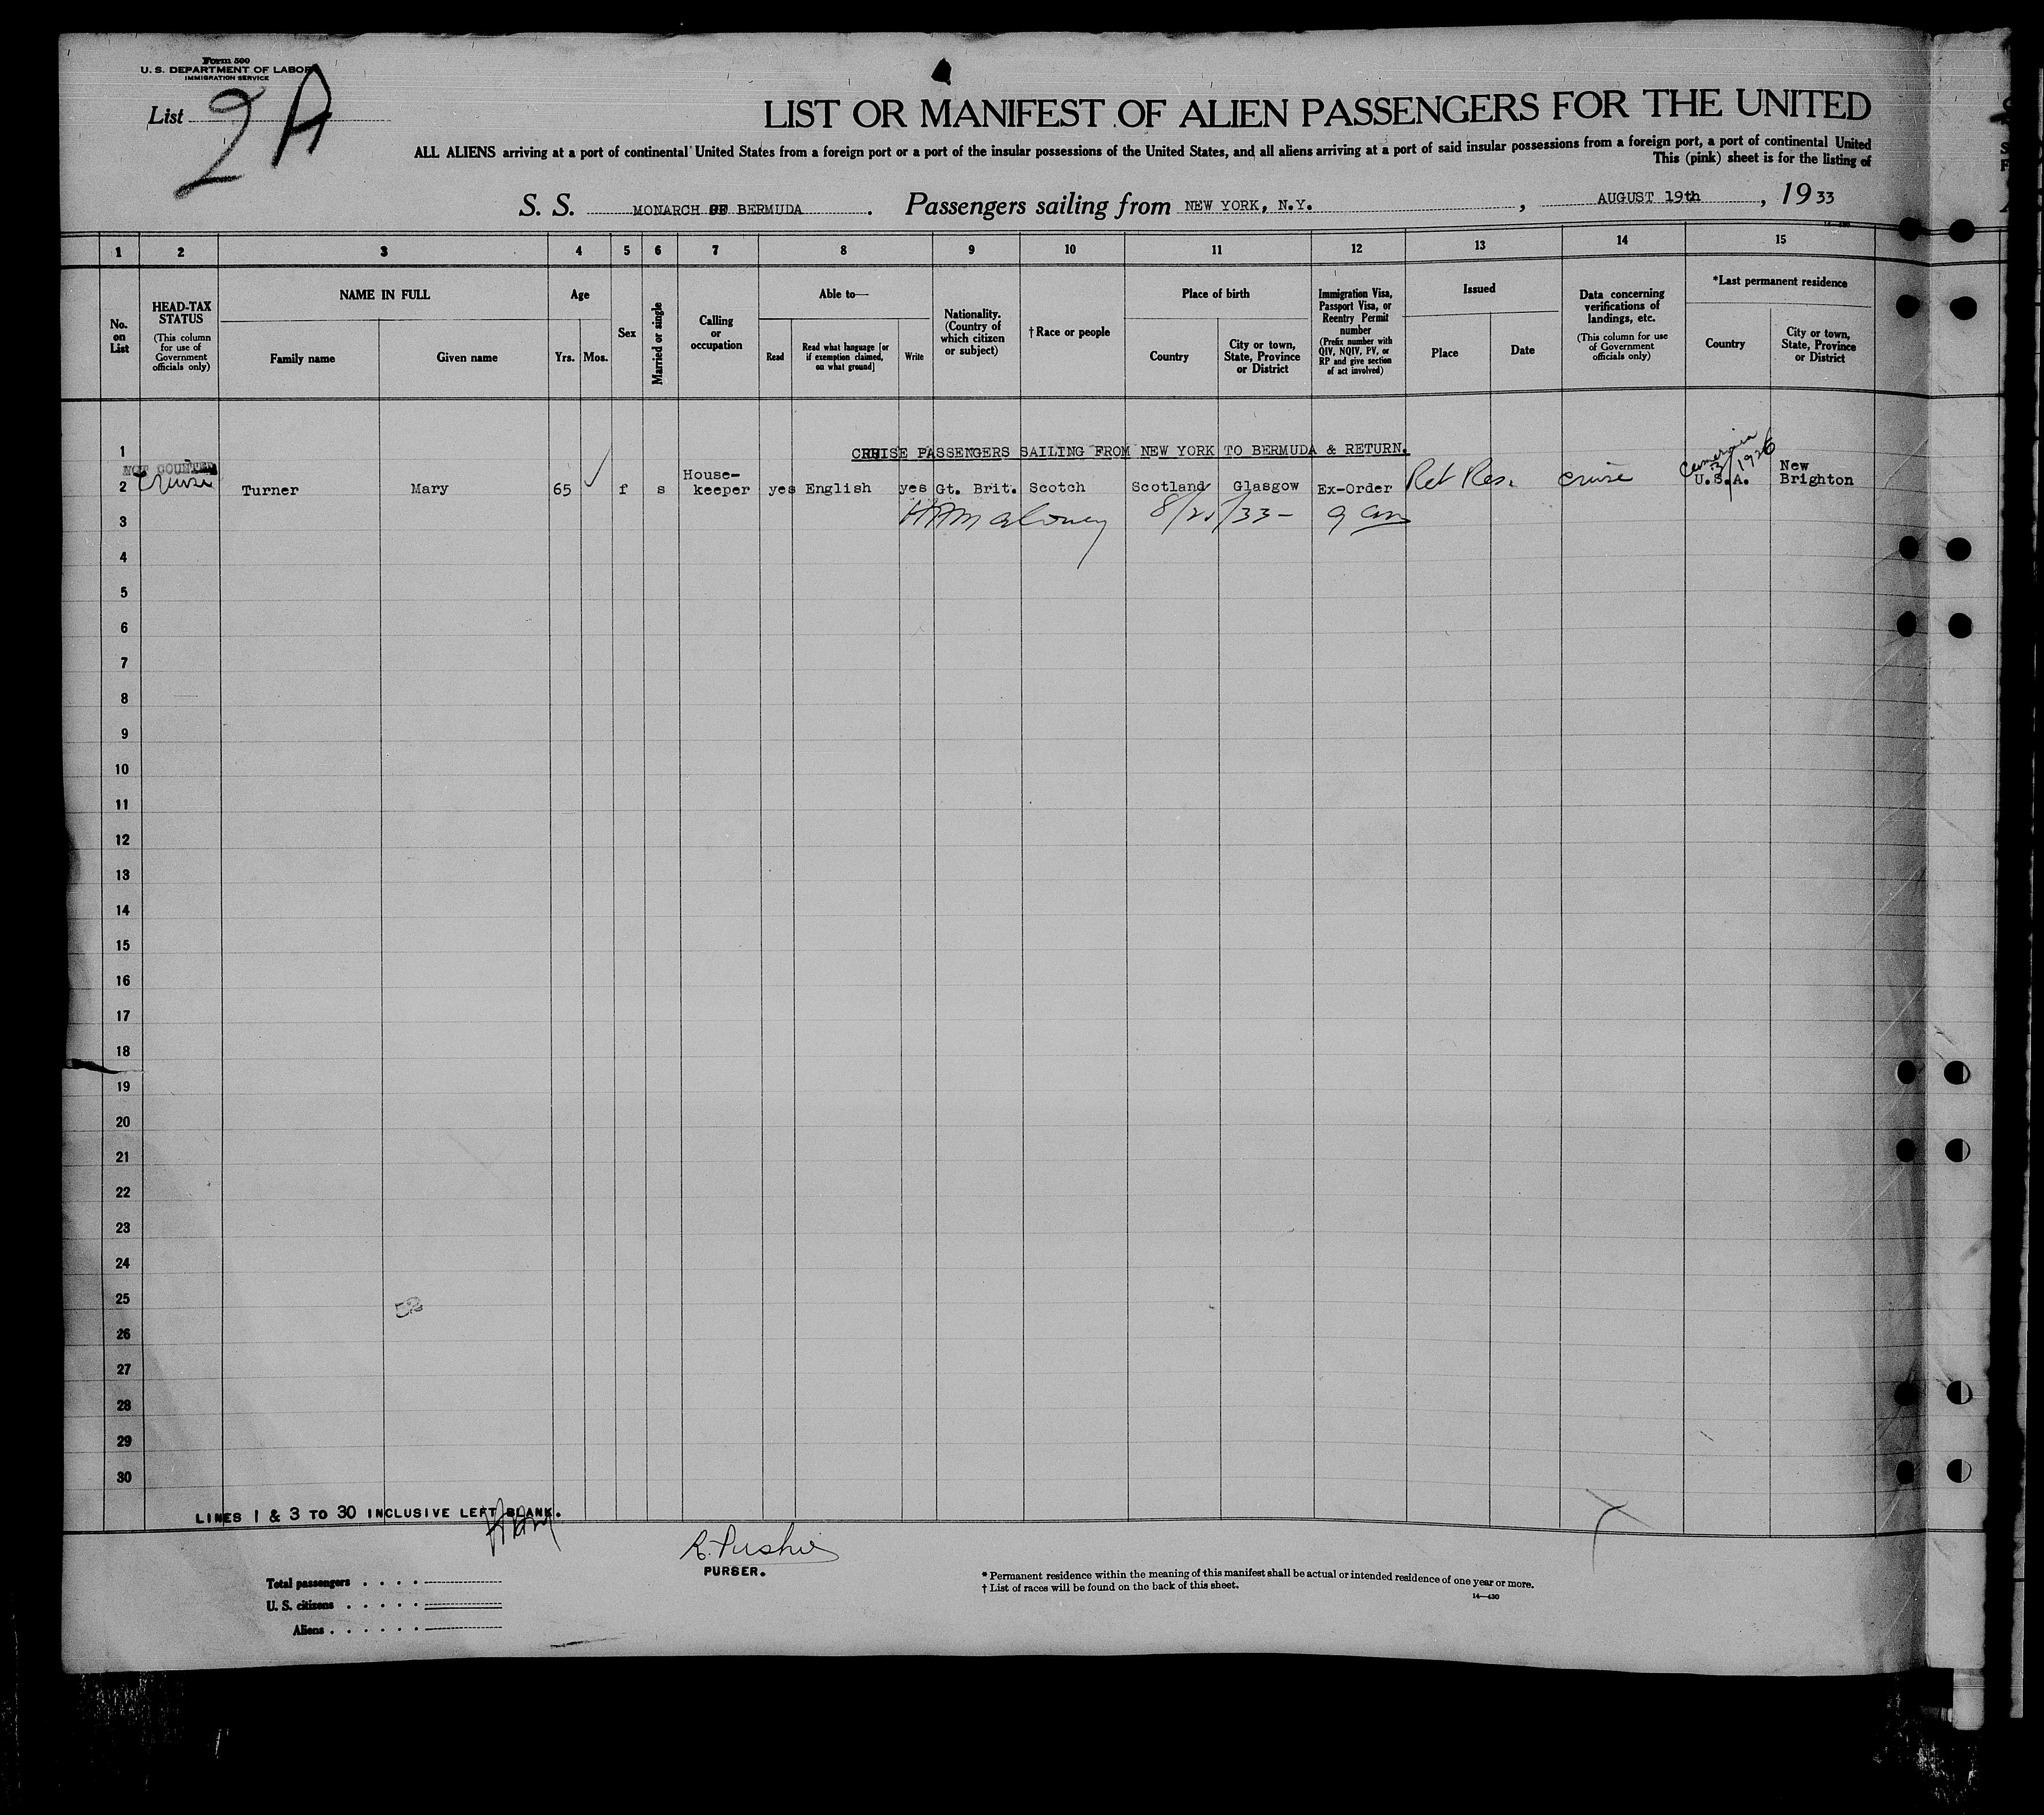 Form 500
U. S. DEPARTMENT OF LABOR
IMMIGRATION SERVICE
List 2A
LIST OR MANIFEST OF ALIEN PASSENGERS FOR THE UNITED
ALL ALIENS arriving at a port of continental United States from a foreign port or a port of the insular possessions of the United States, and all aliens arriving at a port of said insular possessions from a foreign port, a port of continental United
This (pink) sheet is for the listing of
S. S. MONARCH OF BERMUDA . Passengers sailing from NEW YORK, N.Y. , AUGUST 19th , 1933
1 2 3 4 5 6 7 8 9 10 11 12 13 14 15
No. on List
HEAD-TAX STATUS
(This column for use of Government officials only)
NAME IN FULL
Family name
Given name
Age
Yrs. Mos.
Sex
Married or single
Calling or occupation
Able to—
Read
Read what language [or if exemption claimed, on what ground]
Write
Nationality. (Country of which citizen or subject)
† Race or people
Place of birth
Country
City or town, State, Province or District
Immigration Visa, Passport Visa, or Reentry Permit number
(Prefix number with QIV, NQIV, PV, or RP and give section of act involved)
Issued
Place
Date
Data concerning verifications of landings, etc.
(This column for use of Government officials only)
*Last permanent residence
Country
City or town, State, Province or District
1 CRUISE PASSENGERS SAILING FROM NEW YORK TO BERMUDA & RETURN.
NOT COUNTED
Cruise
Cameronia
3/1926
2 Turner Mary 65 f s House-keeper yes English yes Gt. Brit. Scotch Scotland Glasgow Ex-Order Ret Res. cruise U.S.A. New Brighton
3 /33- 9 am
4
5
6
7
8
9
10
11
12
13
14
15
16
17
18
19
20
21
22
23
24
25
52
26
27
28
29
30
LINES 1 & 3 TO 30 INCLUSIVE LEFT BLANK.
R. Pushie
PURSER.
Total passengers
U. S. citizens
Aliens
* Permanent residence within the meaning of this manifest shall be actual or intended residence of one year or more.
† List of races will be found on the back of this sheet.
14—430